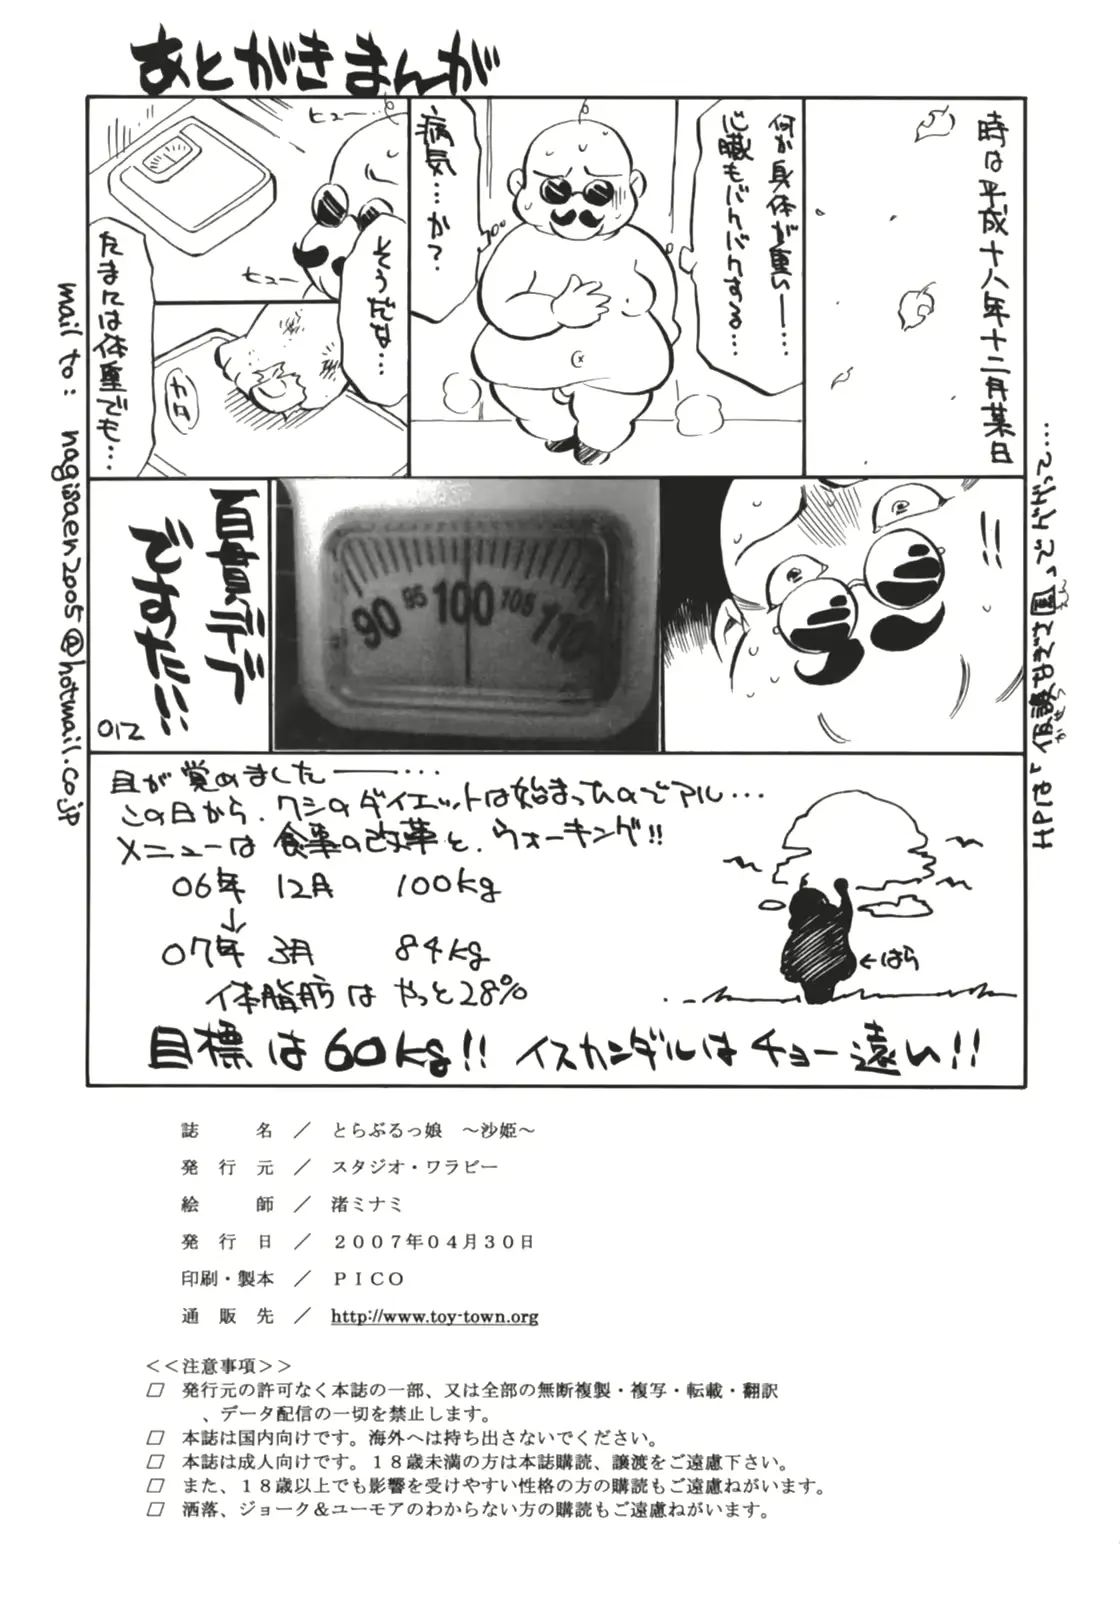 あとがきまんが
時は平成十八年十二月某日
何か身体が重い━…
心臓もバクバクする…
病気…か？
ヒュー…
ヒュー
そうだな…
たまには体重でも…
カタ
!!
90 95 100 105 110
百貫デブ
ですた!!
012
目が覚めました━━…
この日から、ワシのダイエットは始まったのでアル…
メニューは食事の改革と、ウォーキング!!
06年 12月 100kg
↓
07年 3月 84kg
体脂肪は やっと28%
←はら
目標は60kg!! イスカンダルはチョー遠い!!
mail to: nagisaen2005@hotmail.co.jp
誌　　名 ／ とらぶるっ娘　～沙姫～
発 行 元 ／ スタジオ・ワラビー
絵　　師 ／ 渚ミナミ
発 行 日 ／ ２００７年０４月３０日
印刷・製本 ／ ＰＩＣＯ
通 販 先 ／ http://www.toy-town.org
＜＜注意事項＞＞
□ 発行元の許可なく本誌の一部、又は全部の無断複製・複写・転載・翻訳
、データ配信の一切を禁止します。
□ 本誌は国内向けです。海外へは持ち出さないでください。
□ 本誌は成人向けです。１８歳未満の方は本誌購読、譲渡をご遠慮下さい。
□ また、１８歳以上でも影響を受けやすい性格の方の購読もご遠慮ねがいます。
□ 洒落、ジョーク＆ユーモアのわからない方の購読もご遠慮ねがいます。